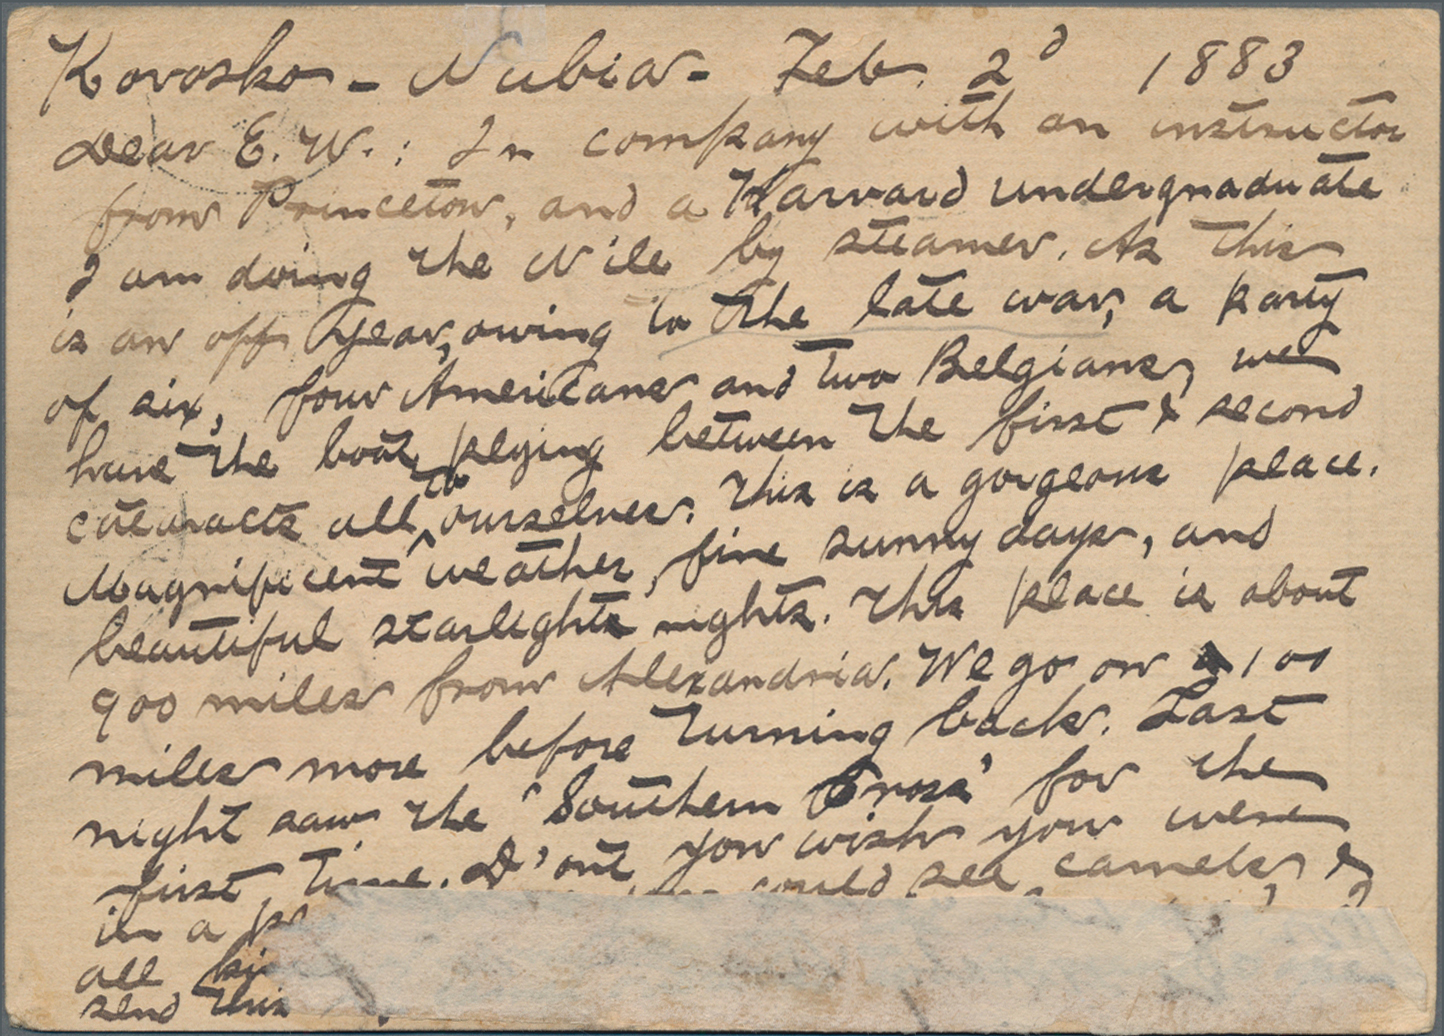 Korosko - Nubia - Feb. 2d 1883
Dear E. W. : In company with an instructor
from Princeton, and a Harvard undergraduate
I am doing the Nile by steamer. As this
is an off year, owing to the late war, a party
of six, four Americans and two Belgians, we
have the boat, plying between the first & second
cataracts all to ourselves. This is a gorgeous place.
Magnificent weather, fine sunny days, and
beautiful starlights nights. This place is about
900 miles from Alexandria. We go on 100
miles more before turning back. Last
night saw the 'Southern Cross' for the
first time. D'ont you wish you were
in a could see camels, &
all
send this